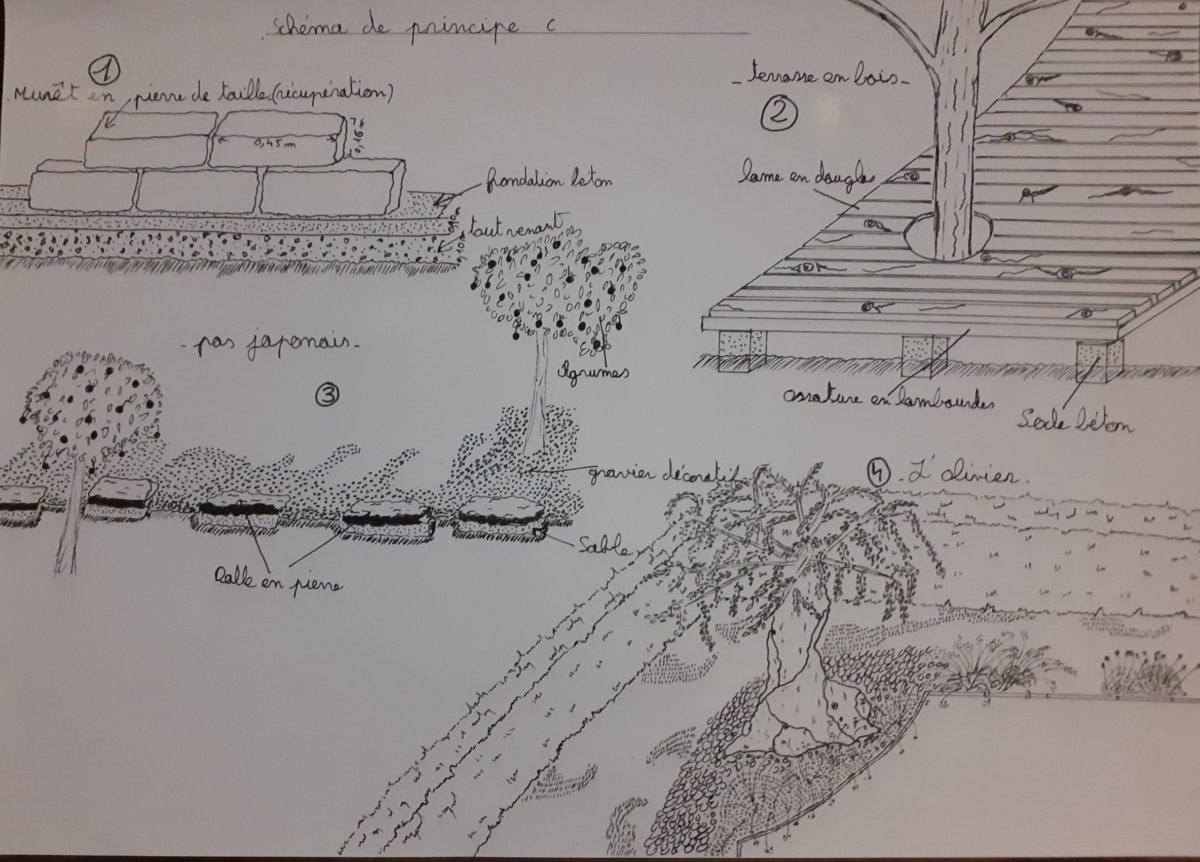 Schéma de principe C
1
Murêt en pierre de taille (récupération)
0,45 m
0,16 m
fondation béton
0,10m
tout venant
0,10m
- terrasse en bois -
2
lame en douglas
ossature en lambourdes
Socle béton
- pas japonais -
3
Agrumes
gravier décoratif
Sable
Dalle en pierre
4 - L'olivier.